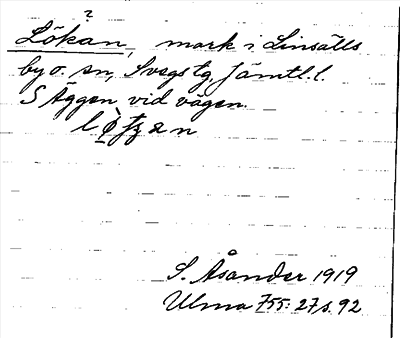 ?
Lökan, mark i Linsälls
by o. sn, Svegs tg, Jämtl. l.
S Aggen vid vägen.
S. Åsander 1919
Ulma 755: 27 s. 92